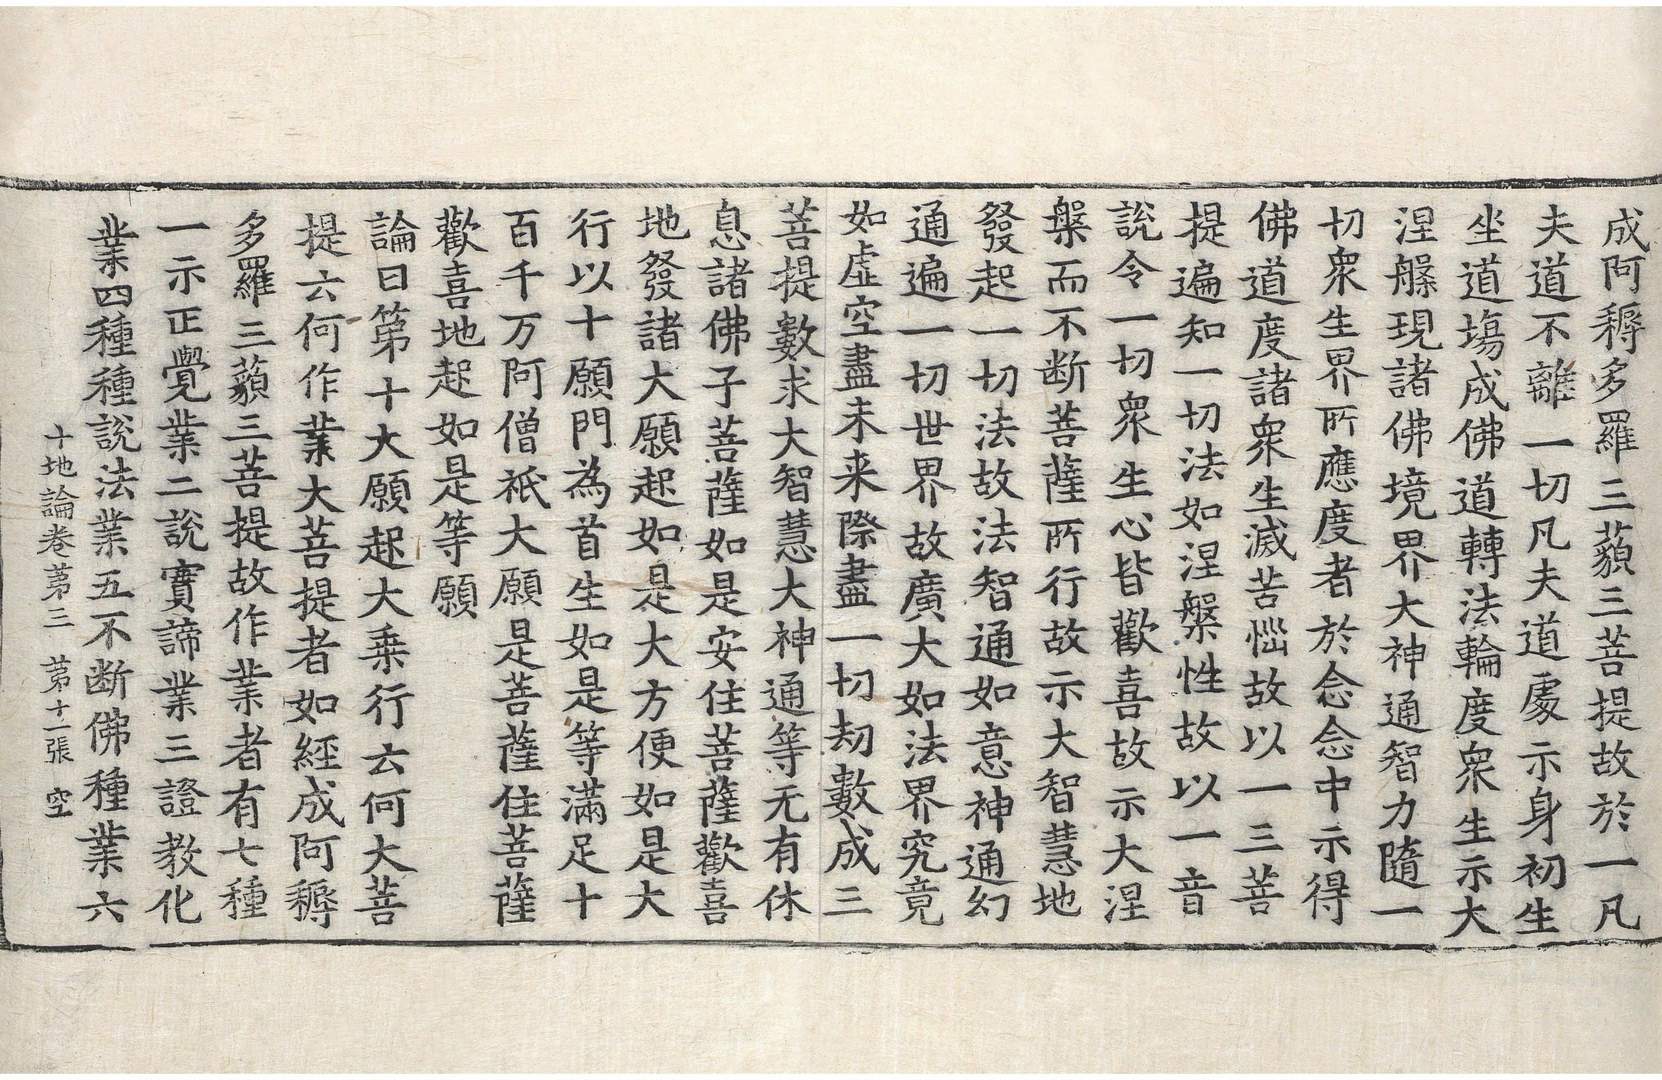 成阿耨多羅三藐三菩提故於一凡
夫道不離一切凡夫道處示身初生
坐道場成佛道轉法輪度衆生示大
涅槃現諸佛境界大神通智力隨一
切衆生界所應度者於念念中示得
佛道度諸衆生滅苦惱故以一三菩
提遍知一切法如涅槃性故以一音
說令一切衆生心皆歡喜故示大涅
槃而不断菩薩所行故示大智慧地
發起一切法故法智通如意神通幻
通遍一切世界故廣大如法界究竟
如虛空盡未来際盡一切劫數成三
菩提數求大智慧大神通等无有休
息諸佛子菩薩如是安住菩薩歡喜
地發諸大願起如是大方便如是大
行以十願門為首生如是等滿足十
百千万阿僧祇大願是菩薩住菩薩
歡喜地起如是等願
論曰第十大願起大乗行云何大菩
提云何作業大菩提者如經成阿耨
多羅三藐三菩提故作業者有七種
一示正覺業二說實諦業三證教化
業四種種說法業五不断佛種業六
十地論卷苐三 第十一張 空